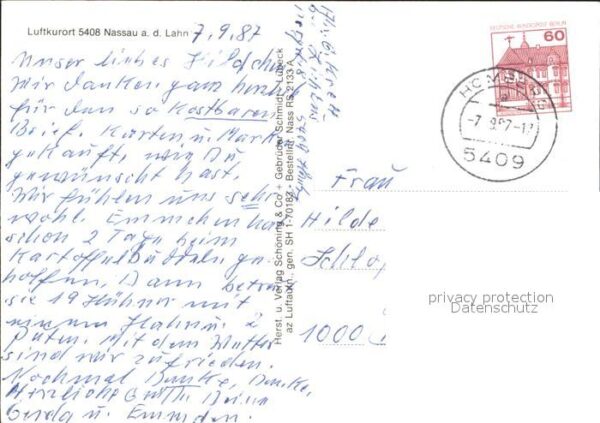 Luftkurort 5408 Nassau a. d. Lahn 7.9.87
Unser liebes Hildchen
Wir danken ganz herzl.
für den so kostbaren
Brief. Karten u. Mark
gekauft, wie Du
gewünscht hast.
Wir fühlen uns sehr
wohl. Emmchen ha
schon 2 Tage beim
Kartoffelbuddeln ge-
holfen, Dann betreu
sie 19 Hühner mit
einem Hahn u. 2
Puten. Mit dem Wetter
sind wir zufrieden.
Nochmal Danke, Danke,
Herzliche Grüße Deine
Gerda u. Emmchen.
5409
Herst. u. Verlag Schöning & Co + Gebrüder Schmidt · Lübeck
az Luftaufn., gen. SH 1-70187 · Bestellnr. Nass RS 2133 A
DEUTSCHE BUNDESPOST BERLIN
60
-7.9.87-1
5409
Frau
Hilde
Schlo
1000
privacy protection
Datenschutz